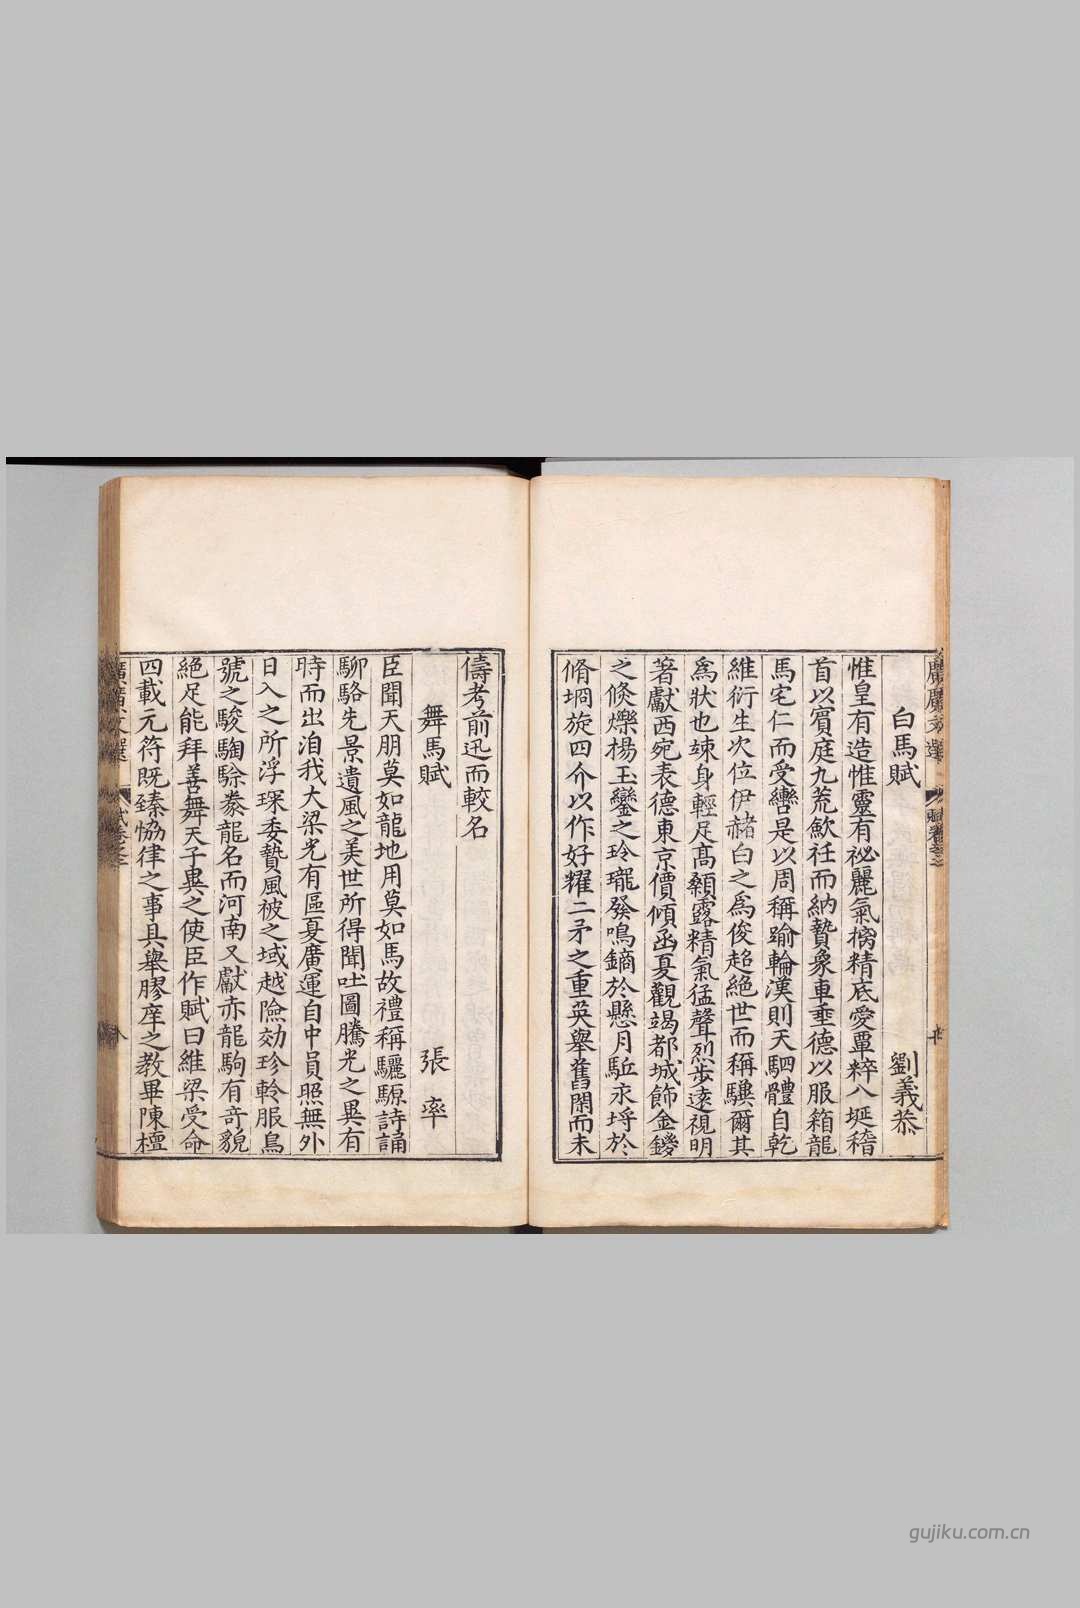 白馬賦 劉義恭
惟皇有造惟靈有祕麗氣摛精底愛覃粹八埏稽
首以賔庭九荒歛衽而納贄象車垂德以服箱龍
馬宅仁而受轡是以周稱踰輪漢則天駟體自乾
維衍生次位伊赭白之爲俊超絕世而稱驥爾其
爲狀也竦身輕足高顙露精氣猛聲烈步遠視明
著獻西宛表德東京價傾函夏觀竭都城飾金鍐
之倐爍楊玉鑾之玲瓏發鳴鏑於懸月駈永埓於
脩坰旋四介以作好耀二矛之重英舉舊閑而未
儔考前迅而較名
舞馬賦 張率
臣聞天朋莫如龍地用莫如馬故禮稱驪騵詩誦
駠駱先景遺風之美世所得聞吐圖騰光之異有
時而出洎我大梁光有區夏廣運自中員照無外
日入之所浮琛委贄風被之域越險効珍軨服烏
號之駿騊駼豢龍名而河南又獻赤龍駒有奇貌
絕足能拜善舞天子異之使臣作賦曰維梁受命
四載元符既臻恊律之事具舉膠庠之教畢陳檀
廣廣文選
賦卷之
廣廣文選
賦卷之
gujiku.com.cn